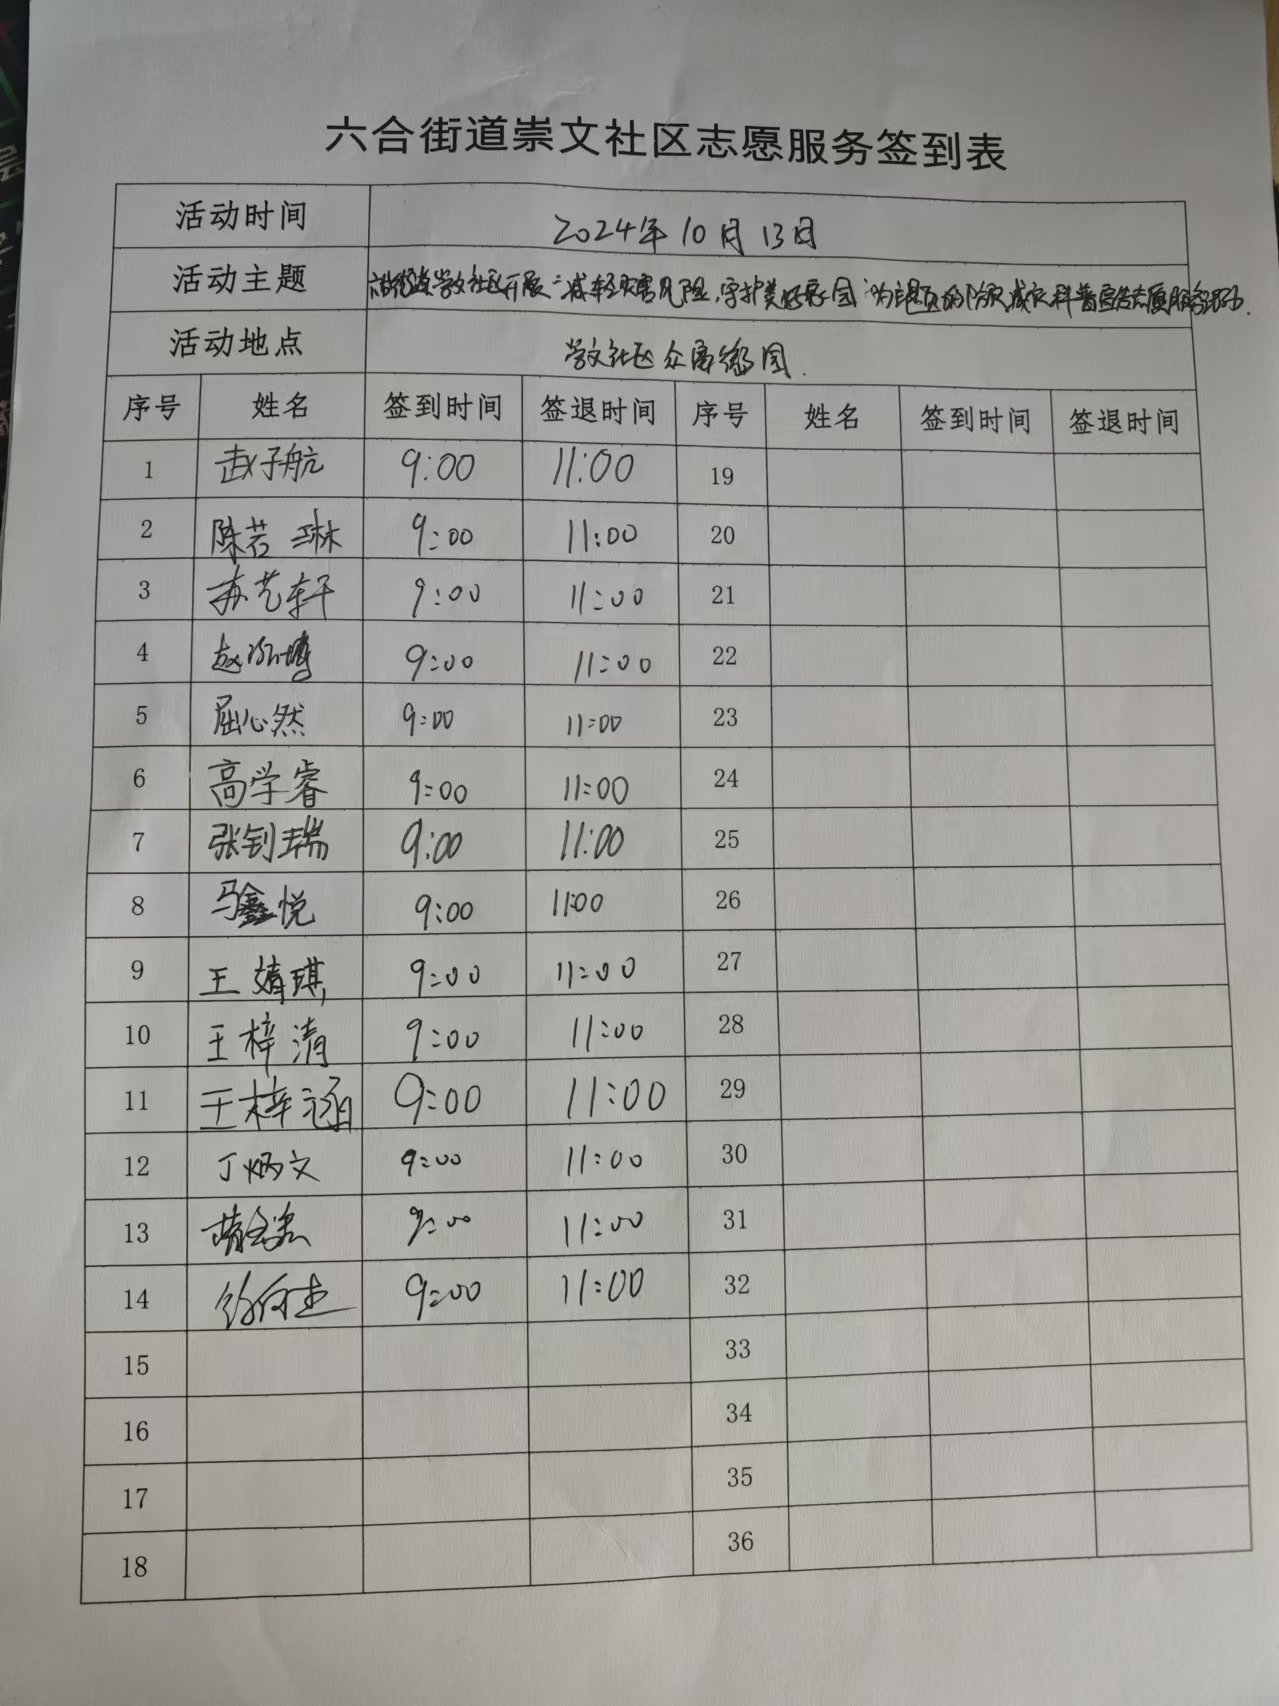 六合街道崇文社区志愿服务签到表
活动时间 2024年10月13日
活动主题 社区开展"减轻灾害风险,守护美好家园"为主题的防灾减灾科普宣传志愿服务活动.
活动地点 崇文社区众惠缘园.
序号 姓名 签到时间 签退时间 序号 姓名 签到时间 签退时间
1 赵子航 9:00 11:00 19
2 陈若琳 9:00 11:00 20
3 苏艺轩 9:00 11:00 21
4 赵 9:00 11:00 22
5 屈心然 9:00 11:00 23
6 高学睿 9:00 11:00 24
7 张钊瑞 9:00 11:00 25
8 马鑫悦 9:00 11:00 26
9 王婧琪 9:00 11:00 27
10 王梓清 9:00 11:00 28
11 王梓涵 9:00 11:00 29
12 丁炳文 9:00 11:00 30
13 9:00 11:00 31
14 9:00 11:00 32
15 33
16 34
17 35
18 36